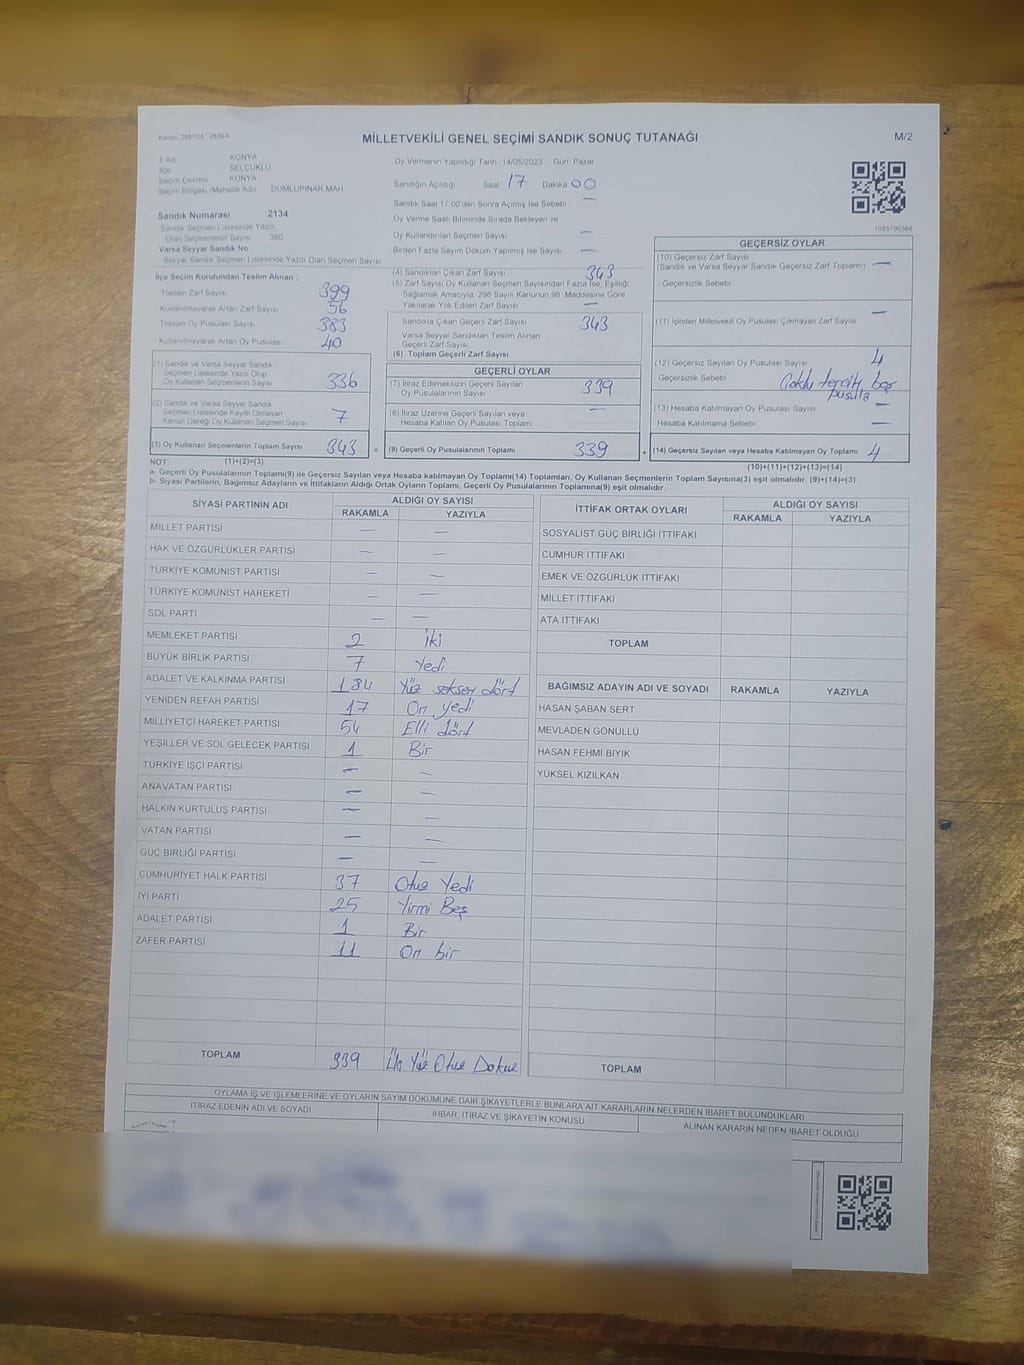 MİLLETVEKİLİ GENEL SEÇİMİ SANDIK SONUÇ TUTANAĞI
M/2
İl Adı KONYA
İlçe SELÇUKLU
Seçim Çevresi KONYA
Seçim Bölgesi (Mahalle Adı) DUMLUPINAR MAH
Sandık Numarası :2134
Sandık Seçmen Listesinde Yazılı
Olan Seçmenlerin Sayısı 380
Varsa Seyyar Sandık No :
Seyyar Sandık Seçmen Listesinde Yazılı Olan Seçmen Sayısı
Oy Vermenin Yapıldığı Tarih :14/05/2023 Gün: Pazar
Sandığın Açıldığı Saat 17 Dakika 00
Sandık Saat 17:00'den Sonra Açımış İse Sebebi —
Oy Verme Saati Bitiminde Sırada Bekleyen ve
Oy Kullandırılan Seçmen Sayısı —
Birden Fazla Sayım Döküm Yapılmış İse Sayısı —
1083790368
İlçe Seçim Kurulundan Teslim Alınan ;
Toplam Zarf Sayısı 399
Kullanılmayarak Artan Zarf Sayısı 56
Toplam Oy Pusulası Sayısı 383
Kullanılmayarak Artan Oy Pusulası 40
(1) Sandık ve Varsa Seyyar Sandık
Seçmen Listesinde Yazılı Olup
Oy Kullanan Seçmenlerin Sayısı 336
(2) Sandık ve Varsa Seyyar Sandık
Seçmen Listesinde Kayıtlı Olmayan
Kanun Gereği Oy Kullanan Seçmen Sayısı 7
(3) Oy Kullanan Seçmenlerin Toplam Sayısı 343
(1)+(2)=(3)
(4) Sandıktan Çıkan Zarf Sayısı 343
(5) Zarf Sayısı Oy Kullanan Seçmen Sayısından Fazla İse, Eşitliği
Sağlamak Amacıyla, 298 Sayılı Kanunun 98. Maddesine Göre
Yakılarak Yok Edilen Zarf Sayısı —
Sandıkta Çıkan Geçerli Zarf Sayısı 343
Varsa Seyyar Sandıktan Teslim Alınan
Geçerli Zarf Sayısı
(6) Toplam Geçerli Zarf Sayısı
GEÇERLİ OYLAR
(7) İtiraz Edilmeksizin Geçerli Sayılan
Oy Pusulalarının Sayısı 339
(8) İtiraz Üzerine Geçerli Sayılan veya
Hesaba Katılan Oy Pusulası Toplamı —
(9) Geçerli Oy Pusulalarının Toplamı 339
GEÇERSİZ OYLAR
(10) Geçersiz Zarf Sayısı
(Sandık ve Varsa Seyyar Sandık Geçersiz Zarf Toplamı) —
Geçersizlik Sebebi
(11) İçinden Milletvekili Oy Pusulası Çıkmayan Zarf Sayısı —
(12) Geçersiz Sayılan Oy Pusulası Sayısı 4
Geçersizlik Sebebi Çoklu tercih, boş
pusula
(13) Hesaba Katılmayan Oy Pusulası Sayısı —
Hesaba Katılmama Sebebi —
(14) Geçersiz Sayılan veya Hesaba Katılmayan Oy Toplamı 4
(10)+(11)+(12)+(13)=(14)
NOT:
a- Geçerli Oy Pusulalarının Toplamı(9) ile Geçersiz Sayılan veya Hesaba katılmayan Oy Toplamı(14) Toplamları, Oy Kullanan Seçmenlerin Toplam Sayısına(3) eşit olmalıdır. (9)+(14)=(3)
b- Siyasi Partilerin, Bağımsız Adayların ve İttifakların Aldığı Ortak Oyların Toplamı, Geçerli Oy Pusulalarının Toplamına(9) eşit olmalıdır.
SİYASİ PARTİNİN ADI ALDIĞI OY SAYISI
RAKAMLA YAZIYLA
MİLLET PARTİSİ — —
HAK VE ÖZGÜRLÜKLER PARTİSİ — —
TÜRKİYE KOMÜNİST PARTİSİ — —
TÜRKİYE KOMÜNİST HAREKETİ — —
SOL PARTİ — —
MEMLEKET PARTİSİ 2 iki
BÜYÜK BİRLİK PARTİSİ 7 Yedi
ADALET VE KALKINMA PARTİSİ 184 Yüz seksen dört
YENİDEN REFAH PARTİSİ 17 On yedi
MİLLİYETÇİ HAREKET PARTİSİ 54 Elli dört
YEŞİLLER VE SOL GELECEK PARTİSİ 1 Bir
TÜRKİYE İŞÇİ PARTİSİ — —
ANAVATAN PARTİSİ — —
HALKIN KURTULUŞ PARTİSİ — —
VATAN PARTİSİ — —
GÜÇ BİRLİĞİ PARTİSİ — —
CUMHURİYET HALK PARTİSİ 37 Otuz Yedi
İYİ PARTİ 25 Yirmi Beş
ADALET PARTİSİ 1 Bir
ZAFER PARTİSİ 11 On bir
TOPLAM 339 Üç Yüz Otuz Dokuz
İTTİFAK ORTAK OYLARI ALDIĞI OY SAYISI
RAKAMLA YAZIYLA
SOSYALİST GÜÇ BİRLİĞİ İTTİFAKI
CUMHUR İTTİFAKI
EMEK VE ÖZGÜRLÜK İTTİFAKI
MİLLET İTTİFAKI
ATA İTTİFAKI
TOPLAM
BAĞIMSIZ ADAYIN ADI VE SOYADI RAKAMLA YAZIYLA
HASAN ŞABAN SERT
MEVLADEN GÖNÜLLÜ
HASAN FEHMİ BIYIK
YÜKSEL KIZILKAN
TOPLAM
OYLAMA İŞ VE İŞLEMLERİNE VE OYLARIN SAYIM DÖKÜMÜNE DAİR ŞİKAYETLERLE BUNLARA AİT KARARLARIN NELERDEN İBARET BULUNDUKLARI
İTİRAZ EDENİN ADI VE SOYADI
İHBAR, İTİRAZ VE ŞİKAYETİN KONUSU
ALINAN KARARIN NEDEN İBARET OLDUĞU